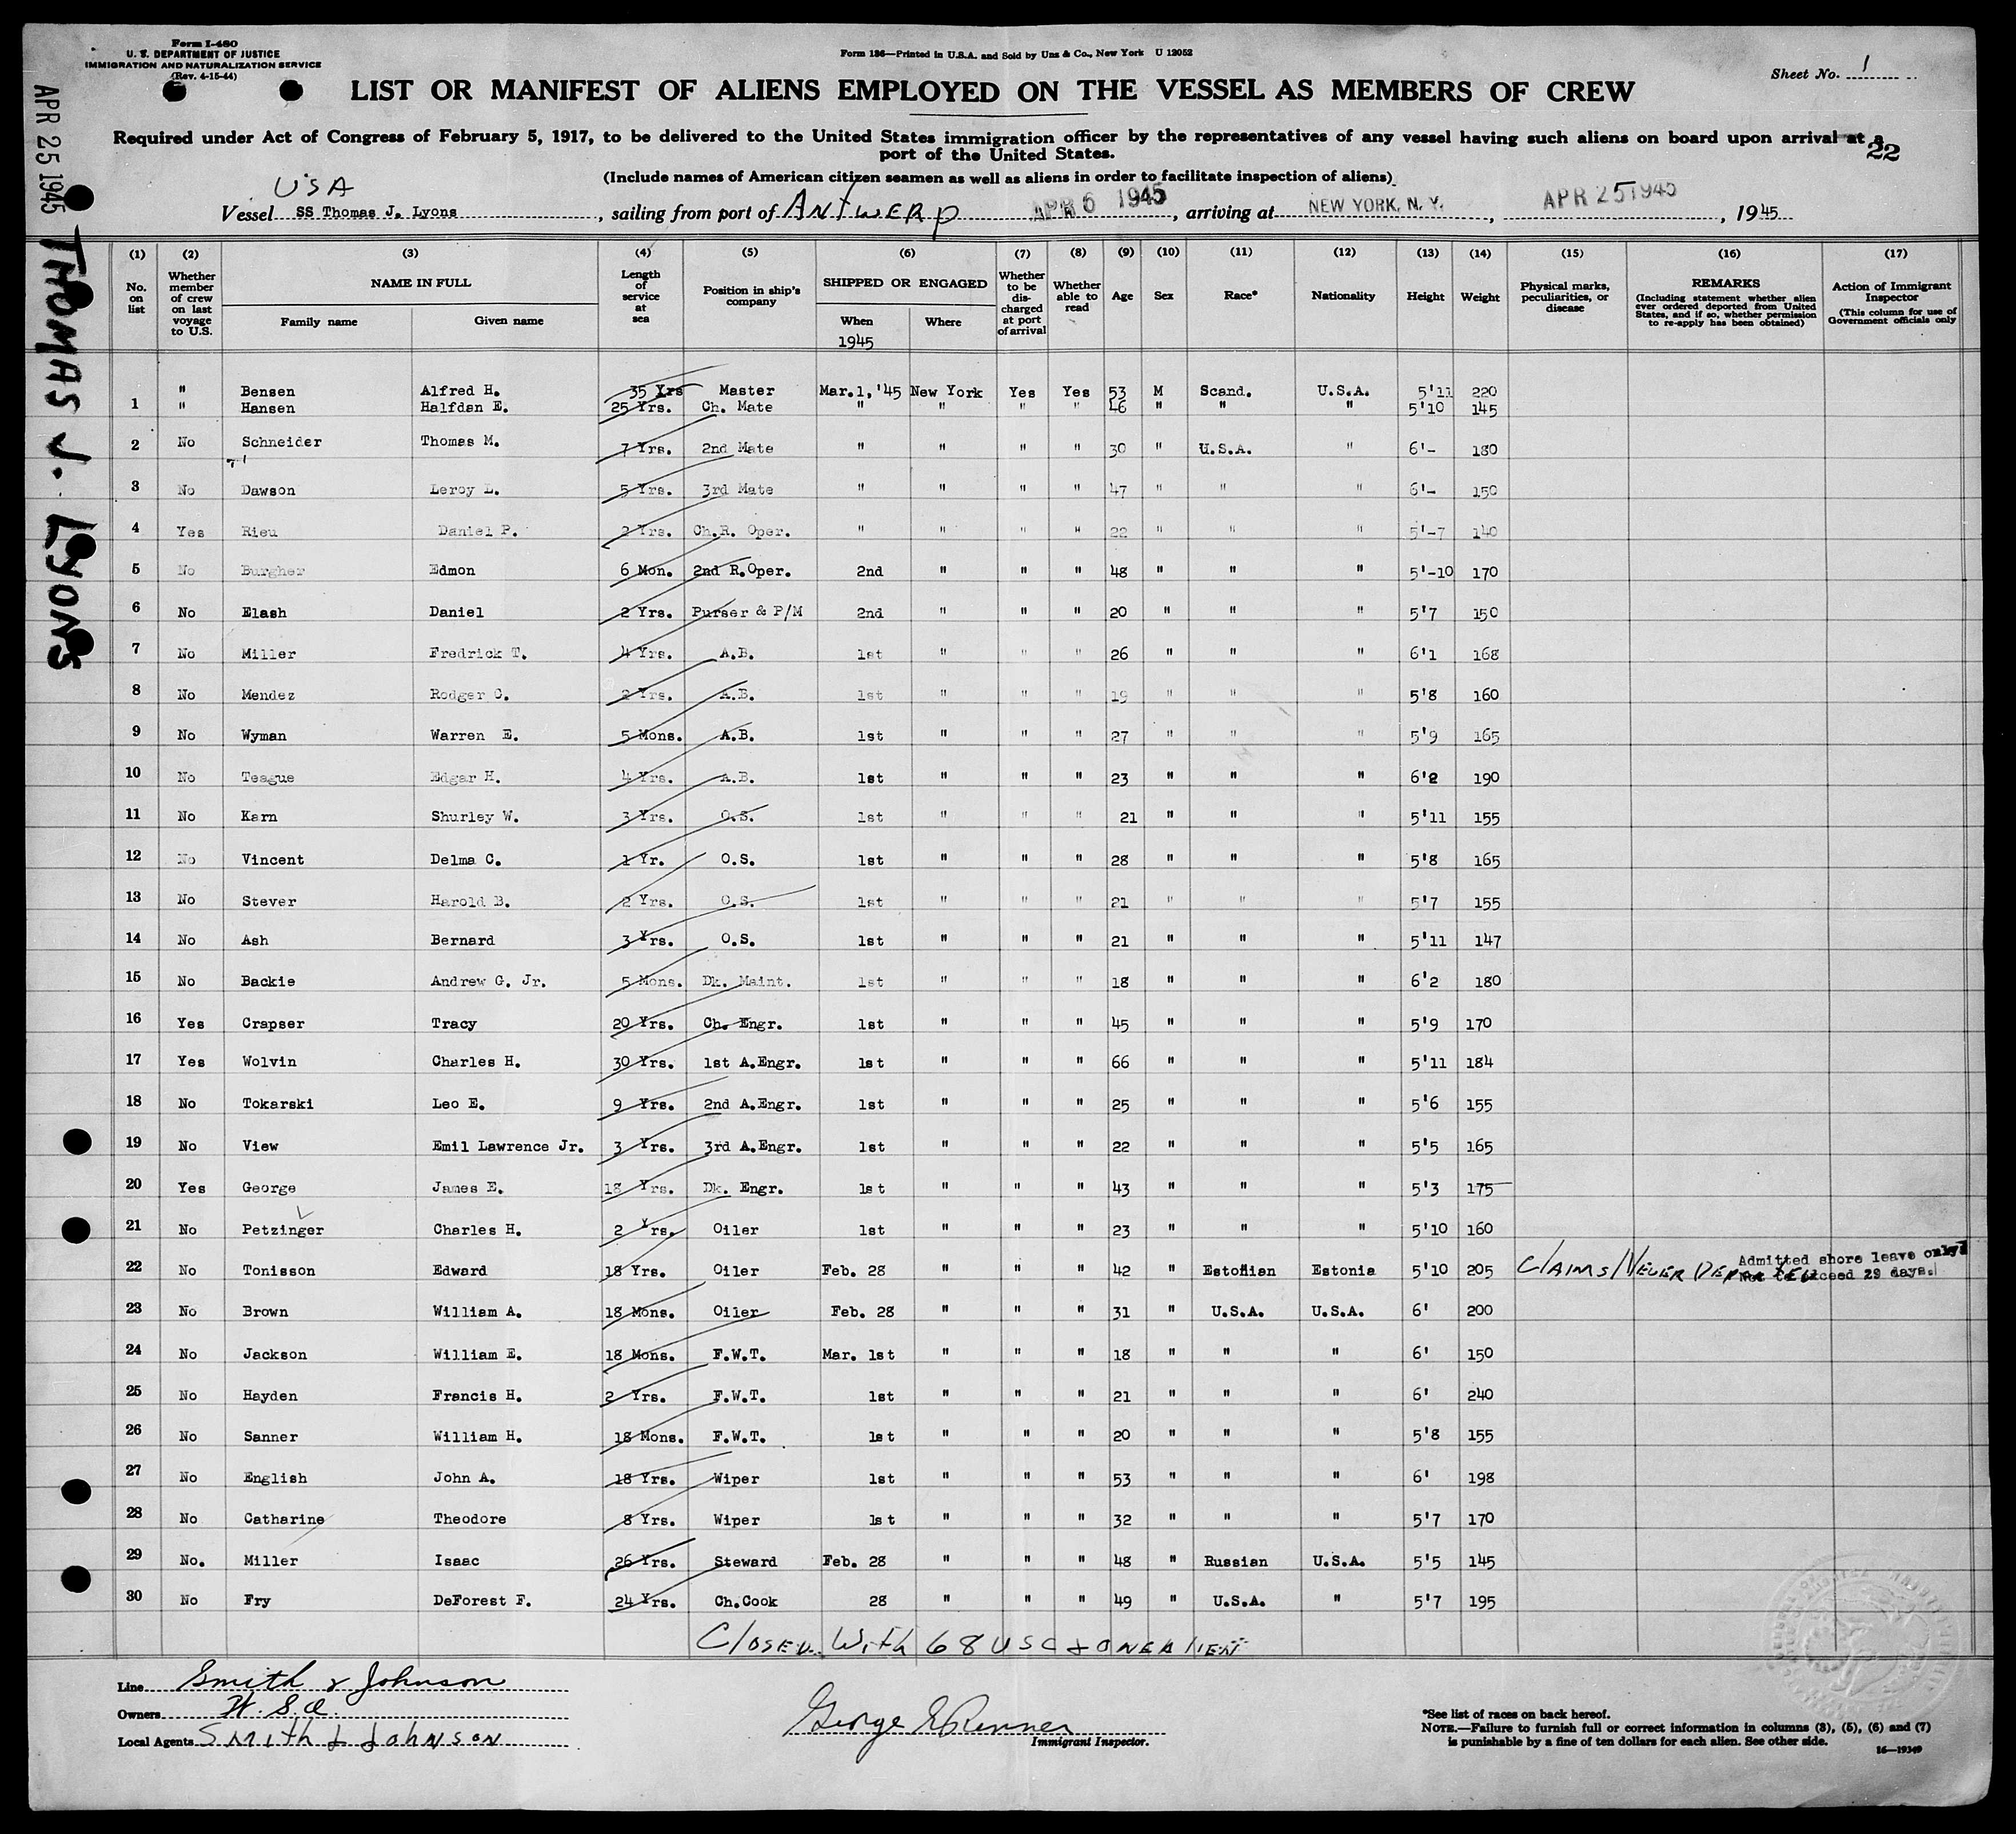 Form I-480
U. S. DEPARTMENT OF JUSTICE
IMMIGRATION AND NATURALIZATION SERVICE
(Rev. 4-15-44)
Form 136—Printed in U.S.A. and Sold by Unz & Co., New York U 12052
Sheet No. 1
LIST OR MANIFEST OF ALIENS EMPLOYED ON THE VESSEL AS MEMBERS OF CREW
Required under Act of Congress of February 5, 1917, to be delivered to the United States immigration officer by the representatives of any vessel having such aliens on board upon arrival at a
port of the United States.
22
(Include names of American citizen seamen as well as aliens in order to facilitate inspection of aliens)
USA
Vessel SS Thomas J. Lyons, sailing from port of ANTWERP APR 6 1945, arriving at NEW YORK, N. Y., APR 25 1945, 1945
APR 25 1945 THOMAS J. LYONS
(1) (2) (3) (4) (5) (6) (7) (8) (9) (10) (11) (12) (13) (14) (15) (16) (17)
No. on list
Whether member of crew on last voyage to U.S.
NAME IN FULL
Family name
Given name
Length of service at sea
Position in ship's company
SHIPPED OR ENGAGED
When
1945
Where
Whether to be discharged at port of arrival
Whether able to read
Age
Sex
Race*
Nationality
Height
Weight
Physical marks, peculiarities, or disease
REMARKS
(Including statement whether alien ever ordered deported from United States, and if so, whether permission to re-apply has been obtained)
Action of Immigrant Inspector
(This column for use of Government officials only
" Bensen Alfred H. 35 Yrs Master Mar.1,'45 New York Yes Yes 53 M Scand. U.S.A. 5'11 220
1 " Hansen Halfdan E. 25 Yrs. Ch. Mate " " " " 46 " " " 5'10 145
2 No Schneider Thomas M. 7 Yrs. 2nd Mate " " " " 30 " U.S.A. " 6'- 180
3 No Dawson Leroy L. 5 Yrs. 3rd Mate " " " " 47 " " " 6'- 150
4 Yes Rieu Daniel P. 2 Yrs. Ch.R. Oper. " " " " 22 " " " 5'-7 140
5 No Burgher Edmon 6 Mon. 2nd R.Oper. 2nd " " " 48 " " " 5'-10 170
6 No Elash Daniel 2 Yrs. Purser & P/M 2nd " " " 20 " " " 5'7 150
7 No Miller Fredrick T. 4 Yrs. A.B. 1st " " " 26 " " " 6'1 168
8 No Mendez Rodger C. 2 Yrs. A.B. 1st " " " 19 " " " 5'8 160
9 No Wyman Warren E. 5 Mons. A.B. 1st " " " 27 " " " 5'9 165
10 No Teague Edgar H. 4 Yrs. A.B. 1st " " " 23 " " " 6'2 190
11 No Karn Shurley W. 3 Yrs. O.S. 1st " " " 21 " " " 5'11 155
12 No Vincent Delma C. 1 Yr. O.S. 1st " " " 28 " " " 5'8 165
13 No Stever Harold B. 2 Yrs. O.S. 1st " " " 21 " " " 5'7 155
14 No Ash Bernard 3 Yrs. O.S. 1st " " " 21 " " " 5'11 147
15 No Backie Andrew G. Jr. 5 Mons. Dk. Maint. 1st " " " 18 " " " 6'2 180
16 Yes Crapser Tracy 20 Yrs. Ch. Engr. 1st " " " 45 " " " 5'9 170
17 Yes Wolvin Charles H. 30 Yrs. 1st A.Engr. 1st " " " 66 " " " 5'11 184
18 No Tokarski Leo E. 9 Yrs. 2nd A.Engr. 1st " " " 25 " " " 5'6 155
19 No View Emil Lawrence Jr. 3 Yrs. 3rd A.Engr. 1st " " " 22 " " " 5'5 165
20 Yes George James E. 18 Yrs. Dk. Engr. 1st " " " 43 " " " 5'3 175
21 No Petzinger Charles H. 2 Yrs. Oiler 1st " " " 23 " " " 5'10 160
22 No Tonisson Edward 18 Yrs. Oiler Feb. 28 " " " 42 " Estonian Estonia 5'10 205 CLAIMS NEVER DEPORTED Admitted shore leave only
Not to exceed 29 days.
23 No Brown William A. 18 Mons. Oiler Feb. 28 " " " 31 " U.S.A. U.S.A. 6' 200
24 No Jackson William E. 18 Mons. F.W.T. Mar. 1st " " " 18 " " " 6' 150
25 No Hayden Francis H. 2 Yrs. F.W.T. 1st " " " 21 " " " 6' 240
26 No Sanner William H. 18 Mons. F.W.T. 1st " " " 20 " " " 5'8 155
27 No English John A. 18 Yrs. Wiper 1st " " " 53 " " " 6' 198
28 No Catharine Theodore 8 Yrs. Wiper 1st " " " 32 " " " 5'7 170
29 No. Miller Isaac 26 Yrs. Steward Feb. 28 " " " 48 " Russian U.S.A. 5'5 145
30 No Fry DeForest F. 24 Yrs. Ch.Cook 28 " " " 49 " U.S.A. " 5'7 195
CLOSED With 68 USC & ONE ALIEN
Line Smith & Johnson
Owners W. S. A.
Local Agents Smith & Johnson
George E Renner
Immigrant Inspector.
*See list of races on back hereof.
NOTE.—Failure to furnish full or correct information in columns (3), (5), (6) and (7)
is punishable by a fine of ten dollars for each alien. See other side.
16—19349